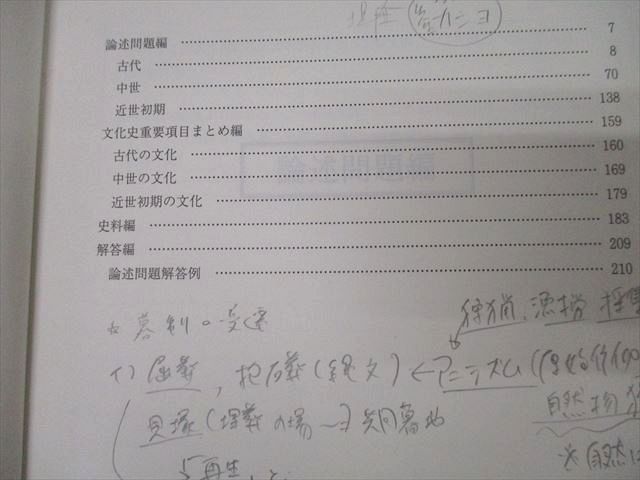 論述問題編 7
古代 8
中世 70
近世初期 138
文化史重要項目まとめ編 159
古代の文化 160
中世の文化 169
近世初期の文化 179
史料編 183
解答編 209
論述問題解答例 210
狩猟、漁撈 採集
☆墓制の変遷
イ) 屈葬, 抱石葬 (縄文) ← アニミズム
自然物
貝塚 (埋葬の場 → 共同墓地
※自然
再生